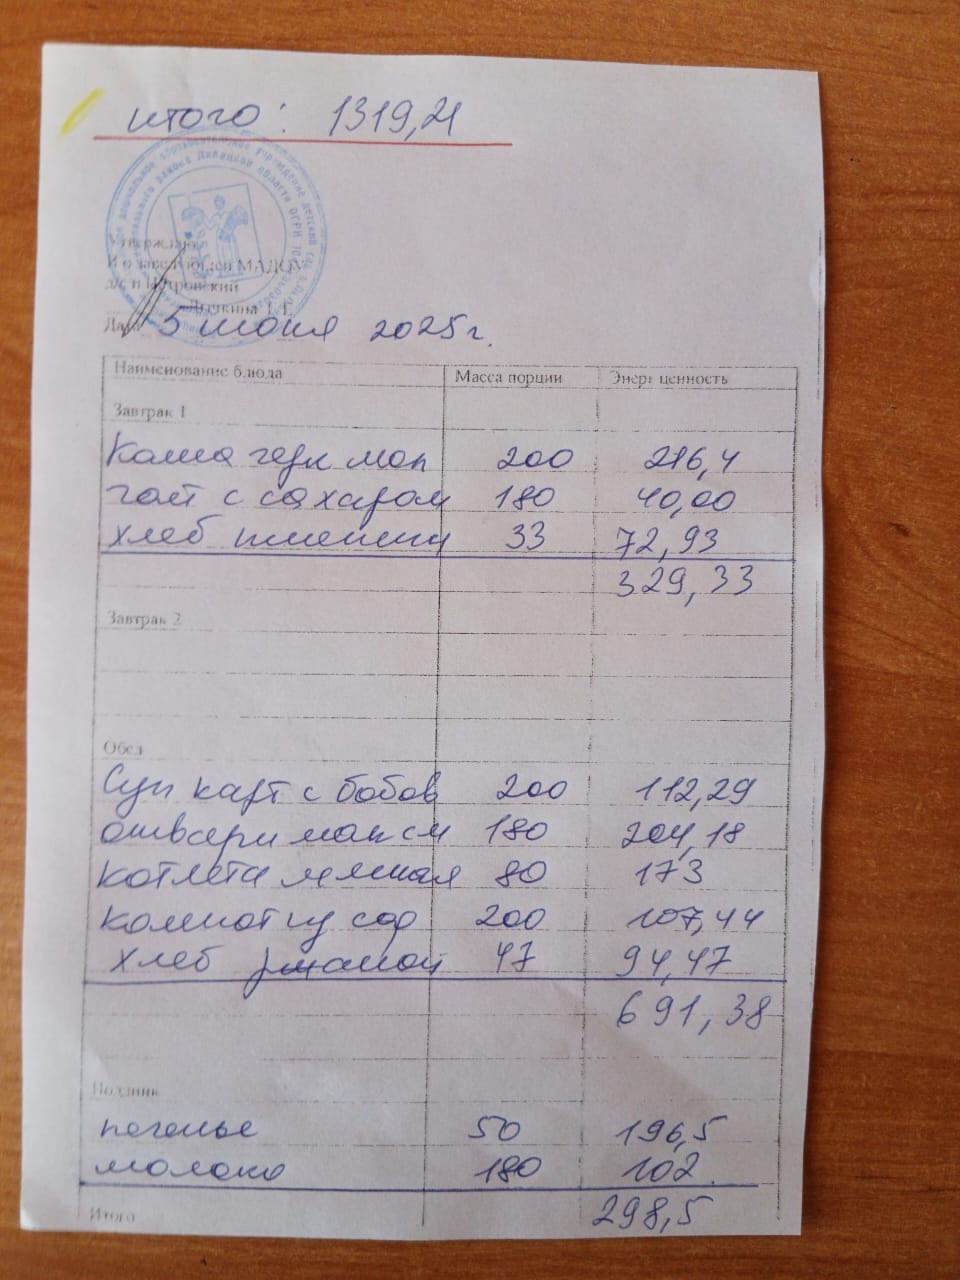 итого: 1319,21
Утверждаю
И о заведующей МАДОУ
д/с п Петровский
Дата 5 июня 2025г.
Наименование блюда Масса порции Энерг ценность
Завтрак 1
Каша герк мол 200 216,4
чай с сахаром 180 40,00
хлеб пшенич 33 72,93
329,33
Завтрак 2
Обед
Суп карт с бобов 200 112,29
отварн мак см 180 204,18
котлета мясная 80 173
компот из сф 200 107,44
хлеб ржаной 47 94,47
691,38
Полдник
печенье 50 196,5
молоко 180 102
Итого 298,5